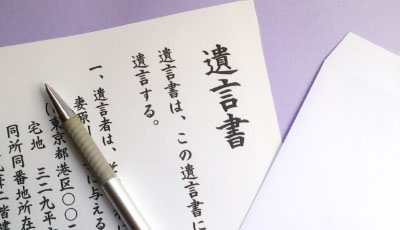 遺言書
遺言書は、この遺言書に
遺言する。
一、遺言者は、そ
妻原に与える
(東京都港区〇〇
宅地 三二九平
同所同番地所在
二階建